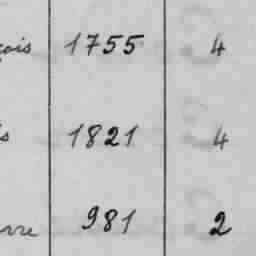 çois 1755 4
s 1821 4
rre 981 2